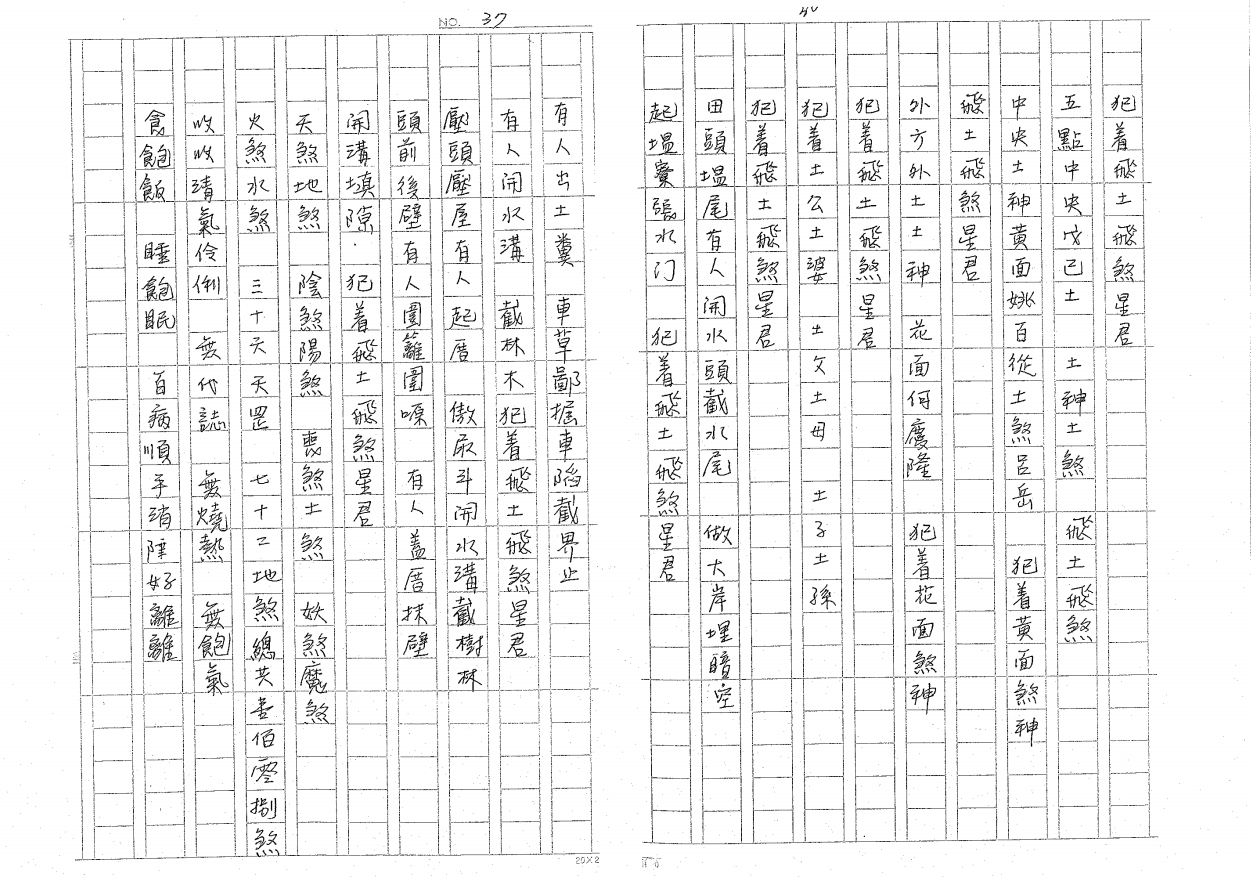 犯着飛土飛煞星君
五點中央戊己土 土神土煞 飛土飛煞
中央土神黃面姚百從土煞呂岳 犯着黃面煞神
飛土飛煞星君
外方外土土神 花面何慶隆 犯着花面煞神
犯着飛土飛煞星君
犯着土公土婆土文土母 土子土孫
犯着飛土飛煞星君
田頭塭尾有人開水頭截水尾 做大岸埋暗空
起塭寮張水门 犯着飛土飛煞星君
NO. 37
有人出土糞 車草鄙掘車陷截界止
有人開水溝 截林木犯着飛土飛煞星君
壓頭壓屋有人起厝 傲尿斗開水溝截樹林
頭前後壁有人圍籬圍 有人蓋厝抹壁
開溝填隙·犯着飛土飛煞星君
天煞地煞 陰煞陽煞 喪煞土煞妖煞魔煞
火煞水煞 三十六天罡 七十二地煞總共壹佰零捌煞
收收清氣伶俐 無代誌 無燒熱 無飽氣
食飽飯 睡飽眠 百病順手消 陣好離離
20X2